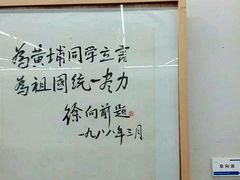 為黃埔同学立言
為祖國統一尽力
徐向前題
一九八八年三月
徐向前